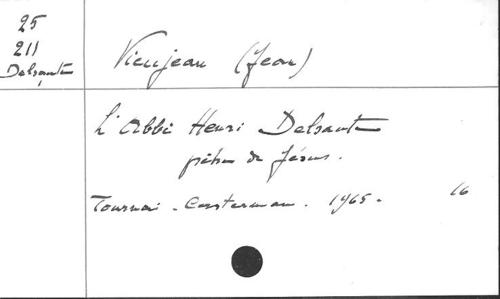 25
211
Delsaute
Vieujean (Jean)
L'Abbé Henri Delsaute
prêtre de Jésus.
Tournai - Casterman. 1965. 16